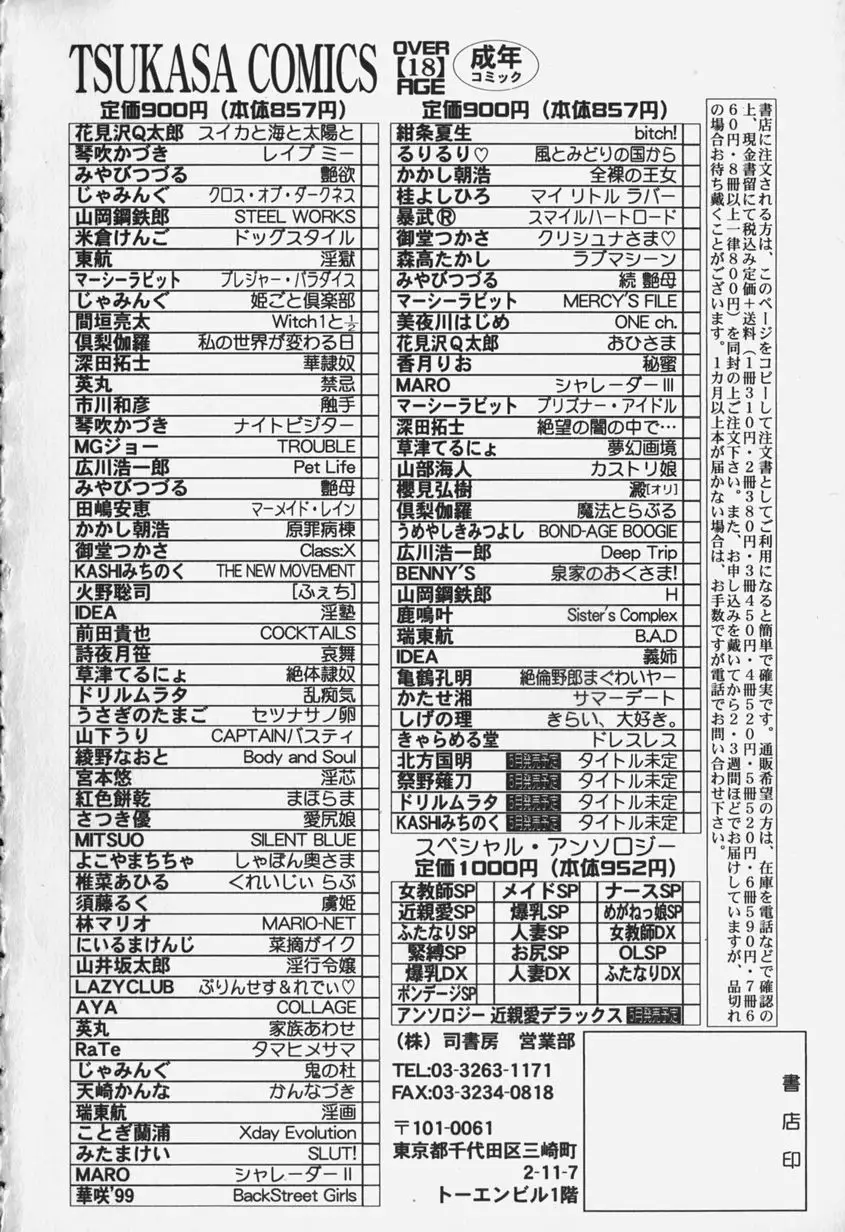 TSUKASA COMICS
OVER
【18】
AGE
成年
コミック
定価900円（本体857円）
花見沢Q太郎 スイカと海と太陽と
琴吹かづき レイプ ミー
みやびつづる 艶欲
じゃみんぐ クロス・オブ・ダークネス
山岡鋼鉄郎 STEEL WORKS
米倉けんご ドッグスタイル
東航 淫獄
マーシーラビット プレジャー・パラダイス
じゃみんぐ 姫ごと倶楽部
間垣亮太 Witch1と½
倶梨伽羅 私の世界が変わる日
深田拓士 華隷奴
英丸 禁忌
市川和彦 触手
琴吹かづき ナイトビジター
MGジョー TROUBLE
広川浩一郎 Pet Life
みやびつづる 艶母
田嶋安恵 マーメイド・レイン
かかし朝浩 原罪病棟
御堂つかさ Class:X
KASHIみちのく THE NEW MOVEMENT
火野聡司 [ふぇち]
IDEA 淫塾
前田貴也 COCKTAILS
詩夜月笹 哀舞
草津てるにょ 絶体隷奴
ドリルムラタ 乱痴気
うさぎのたまご セツナサノ卵
山下うり CAPTAINバスティ
綾野なおと Body and Soul
宮本悠 淫芯
紅色餅乾 まほらま
さつき優 愛尻娘
MITSUO SILENT BLUE
よこやまちちゃ しゃぼん奥さま
椎菜あひる くれいじぃ らぶ
須藤るく 虜姫
林マリオ MARIO-NET
にいるまけんじ 菜摘がイク
山井坂太郎 淫行令嬢
LAZYCLUB ぷりんせす&れでぃ♡
AYA COLLAGE
英丸 家族あわせ
RaTe タマヒメサマ
じゃみんぐ 鬼の杜
天崎かんな かんなづき
瑞東航 淫画
ことぎ蘭浦 Xday Evolution
みたまけい SLUT!
MARO シャレーダーⅡ
華咲'99 BackStreet Girls
定価900円（本体857円）
紺条夏生 bitch!
るりるり♡ 風とみどりの国から
かかし朝浩 全裸の王女
桂よしひろ マイ リトル ラバー
暴武Ⓡ スマイルハートロード
御堂つかさ クリシュナさま♡
森高たかし ラブマシーン
みやびつづる 続 艶母
マーシーラビット MERCY'S FILE
美夜川はじめ ONE ch.
花見沢Q太郎 おひさま
香月りお 秘蜜
MARO シャレーダーⅢ
マーシーラビット プリズナー・アイドル
深田拓士 絶望の闇の中で…
草津てるにょ 夢幻画境
山部海人 カストリ娘
櫻見弘樹 澱[オリ]
倶梨伽羅 魔法とらぶる
うめやしきみつよし BOND-AGE BOOGIE
広川浩一郎 Deep Trip
BENNY'S 泉家のおくさま!
山岡鋼鉄郎 H
鹿鳴叶 Sister's Complex
瑞東航 B.A.D
IDEA 義姉
亀鶴孔明 絶倫野郎まぐわいヤー
かたせ湘 サマーデート
しげの理 きらい、大好き。
きゃらめる堂 ドレスレス
北方国明 タイトル未定
祭野薙刀 タイトル未定
ドリルムラタ タイトル未定
KASHIみちのく タイトル未定
スペシャル・アンソロジー
定価1000円（本体952円）
女教師SP メイドSP ナースSP
近親愛SP 爆乳SP めがねっ娘SP
ふたなりSP 人妻SP 女教師DX
緊縛SP お尻SP OLSP
爆乳DX 人妻DX ふたなりDX
ボンデージSP
アンソロジー 近親愛デラックス
書店に注文される方は、このページをコピーして注文書としてご利用になると簡単で確実です。通販希望の方は、在庫を電話などで確認の
上、現金書留にて税込み定価＋送料（1冊310円・2冊380円・3冊450円・4冊520円・5冊520円・6冊590円・7冊6
60円・8冊以上一律800円）を同封の上ご注文下さい。また、お申し込みを戴いてから2・3週間ほどでお届けしていますが、品切れ
の場合お待ち戴くことがございます。1カ月以上本が届かない場合は、お手数ですが電話でお問い合わせ下さい。
（株）司書房 営業部
TEL:03-3263-1171
FAX:03-3234-0818
〒101-0061
東京都千代田区三崎町
2-11-7
トーエンビル1階
書店印